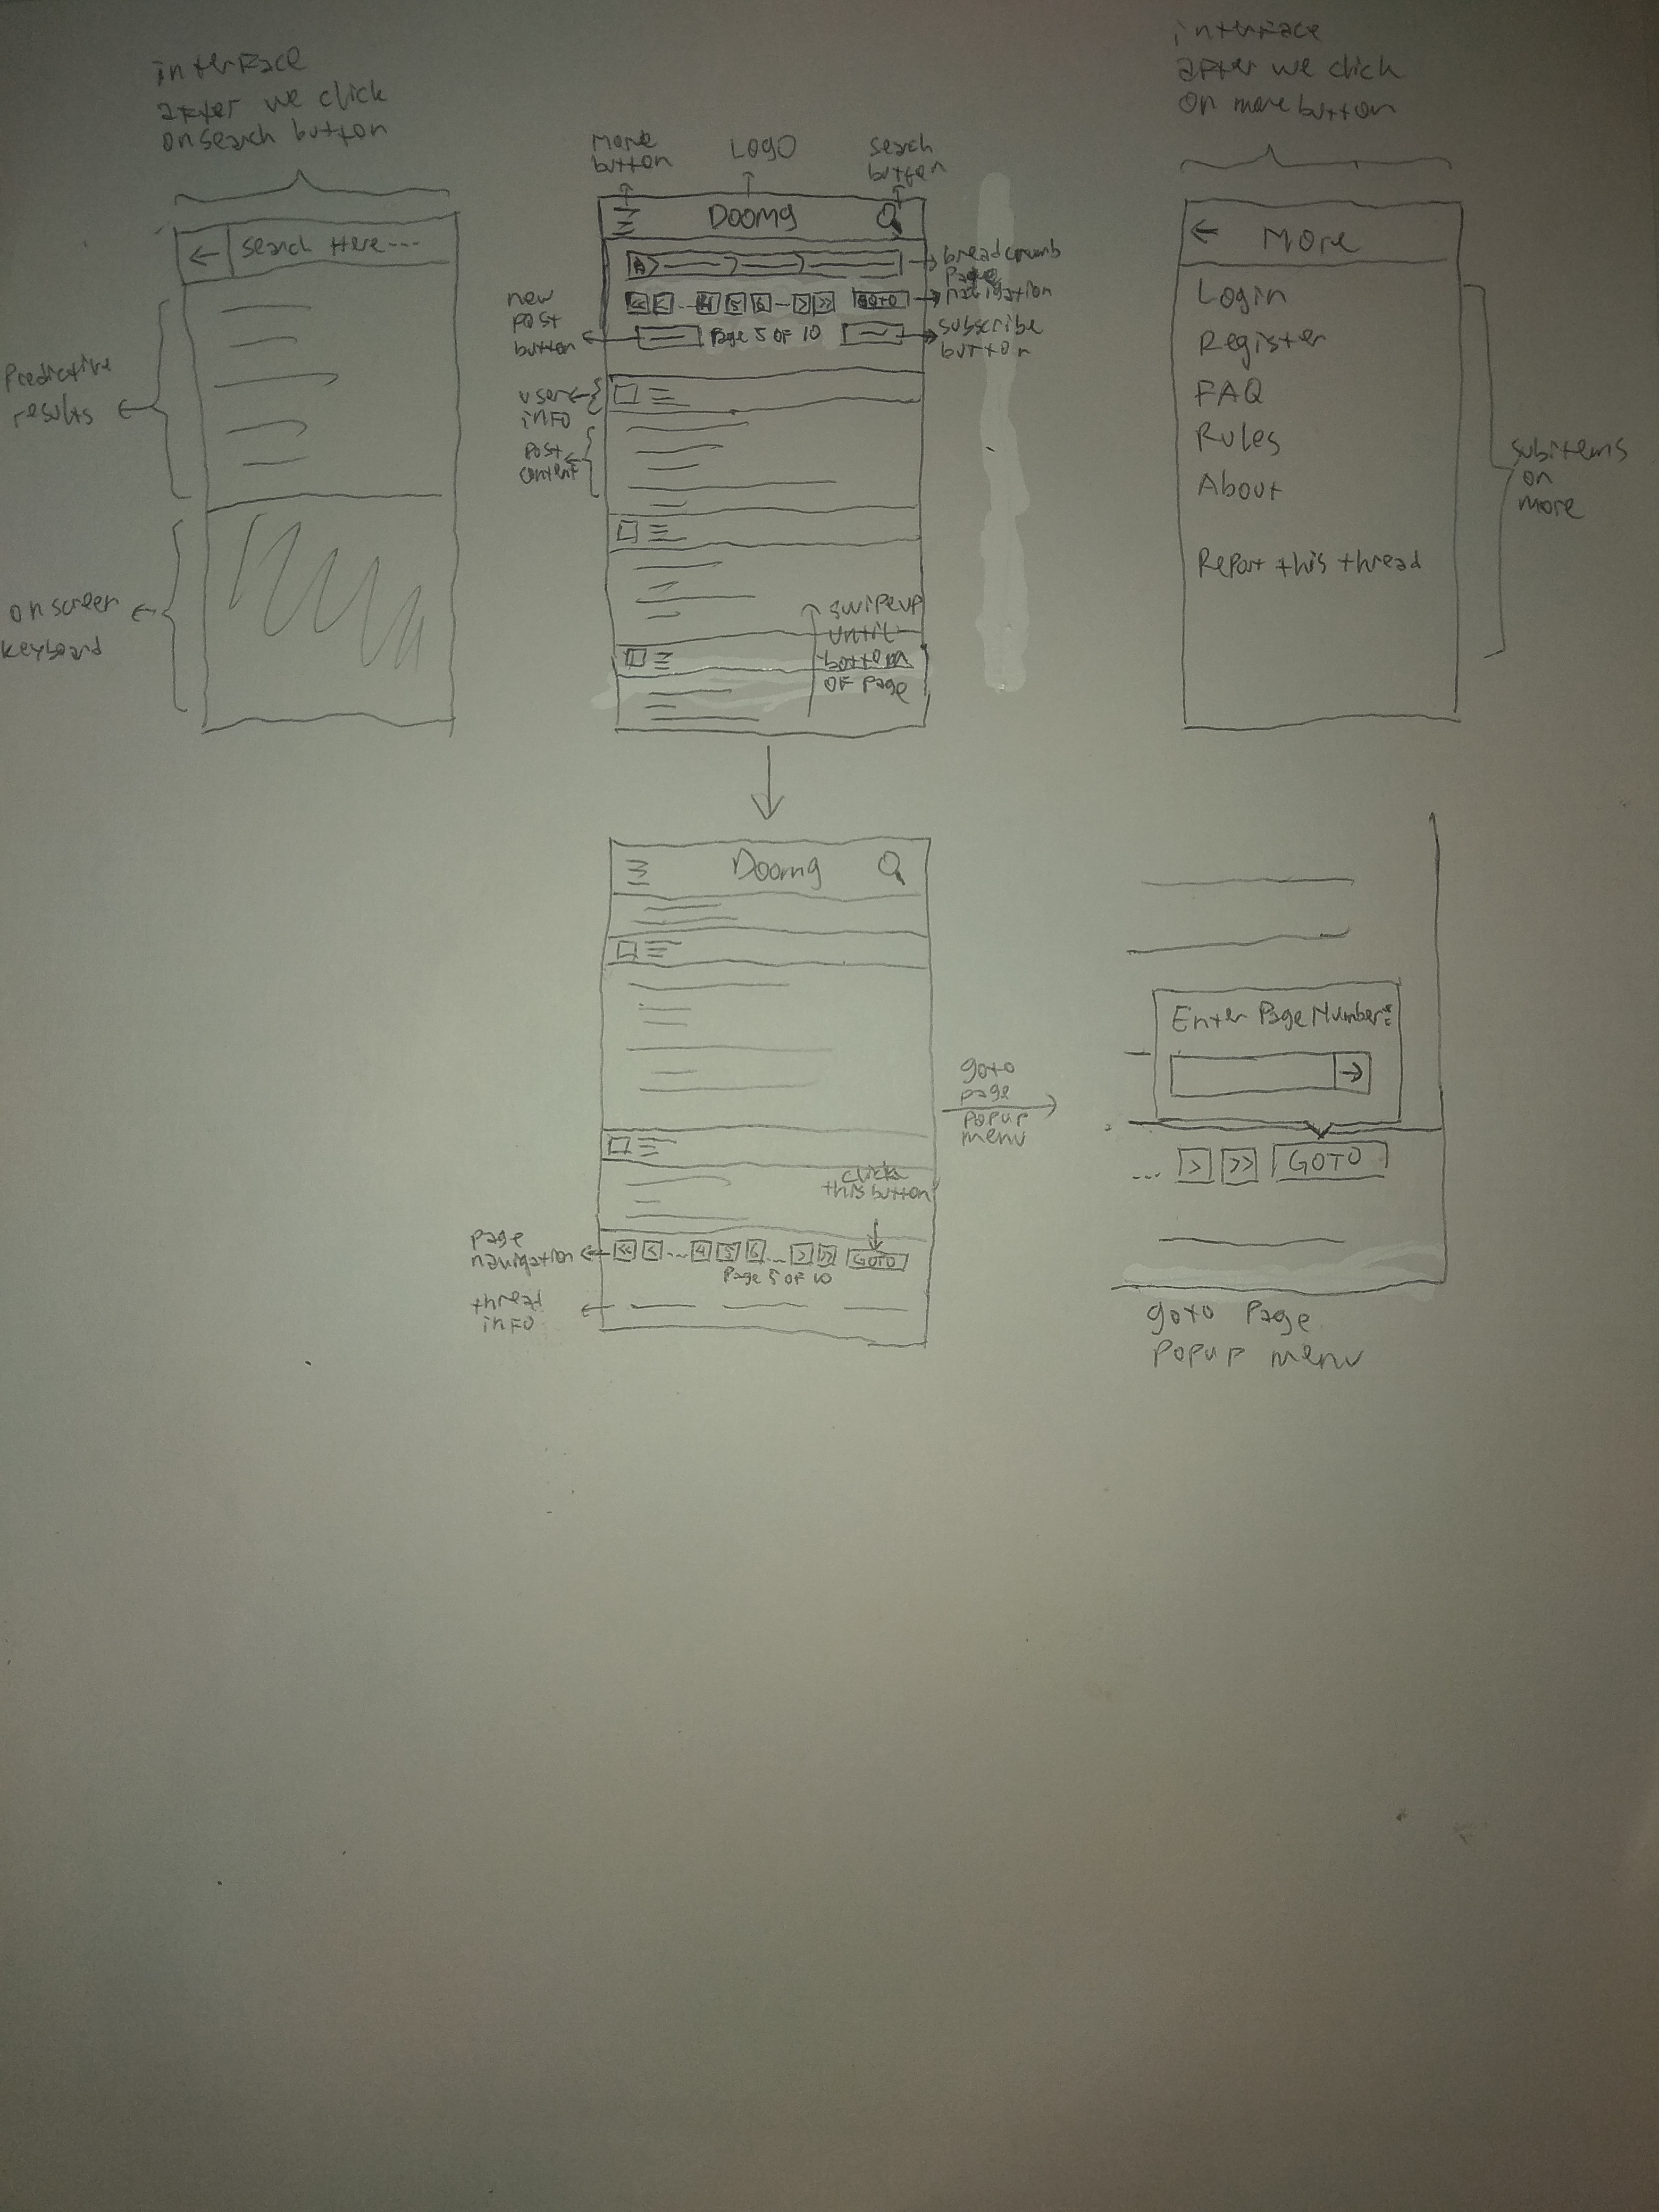 interface
after we click
on search button
←
Search Here ---
Predictive
results
on screen
keyboard
More
button
LOGO
search
button
Doomg
breadcrumb
page
navigation
<<
<
...
4
5
6
>
>>
GOTO
new
post
button
Page 5 OF 10
subscribe
button
user
info
post
content
swipe up
until
bottom
OF page
interface
after we click
on more button
← More
Login
Register
FAQ
Rules
About
Report this thread
subitems
on
more
Doomg
click
this button
page
navigation
<< < ... 4 5 6 ... > >> GOTO
Page 5 OF 10
thread
info
goto
page
popup
menu
Enter Page Number:
→
... > >> GOTO
goto Page
Popup menu